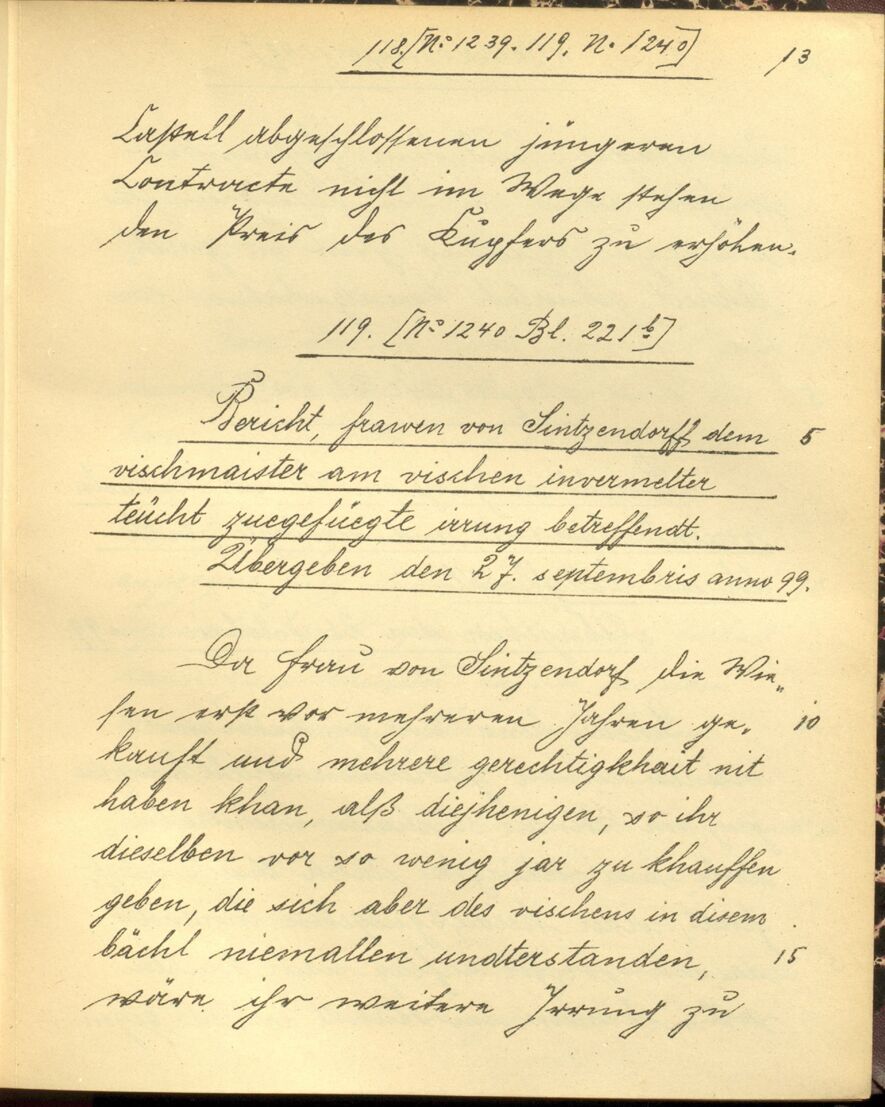 118. [No 1239. 119. N. 1240] 13
Castell abgeschlossenen jüngeren
Contracte nicht im Wege stehen
den Preis des Kupfers zu erhöhen.
119. [No 1240 Bl. 221b]
Bericht, frawen von Sintzendorff dem 5
vischmaister am vischen invermelter
teücht zuegefüegte irrung betreffendt.
Übergeben den 27. septembris anno 99.
Da Frau von Sintzendorf die Wie„
sen erst vor mehreren Jahren ge„ 10
kauft und mehrere gerechtigkhait nit
haben khan, alß diejhenigen, so ihr
dieselben vor so wenig jar zu khauffen
geben, die sich aber des vischens in disem
bächl niemallen undterstanden, 15
wäre ihr weitere Irrung zu